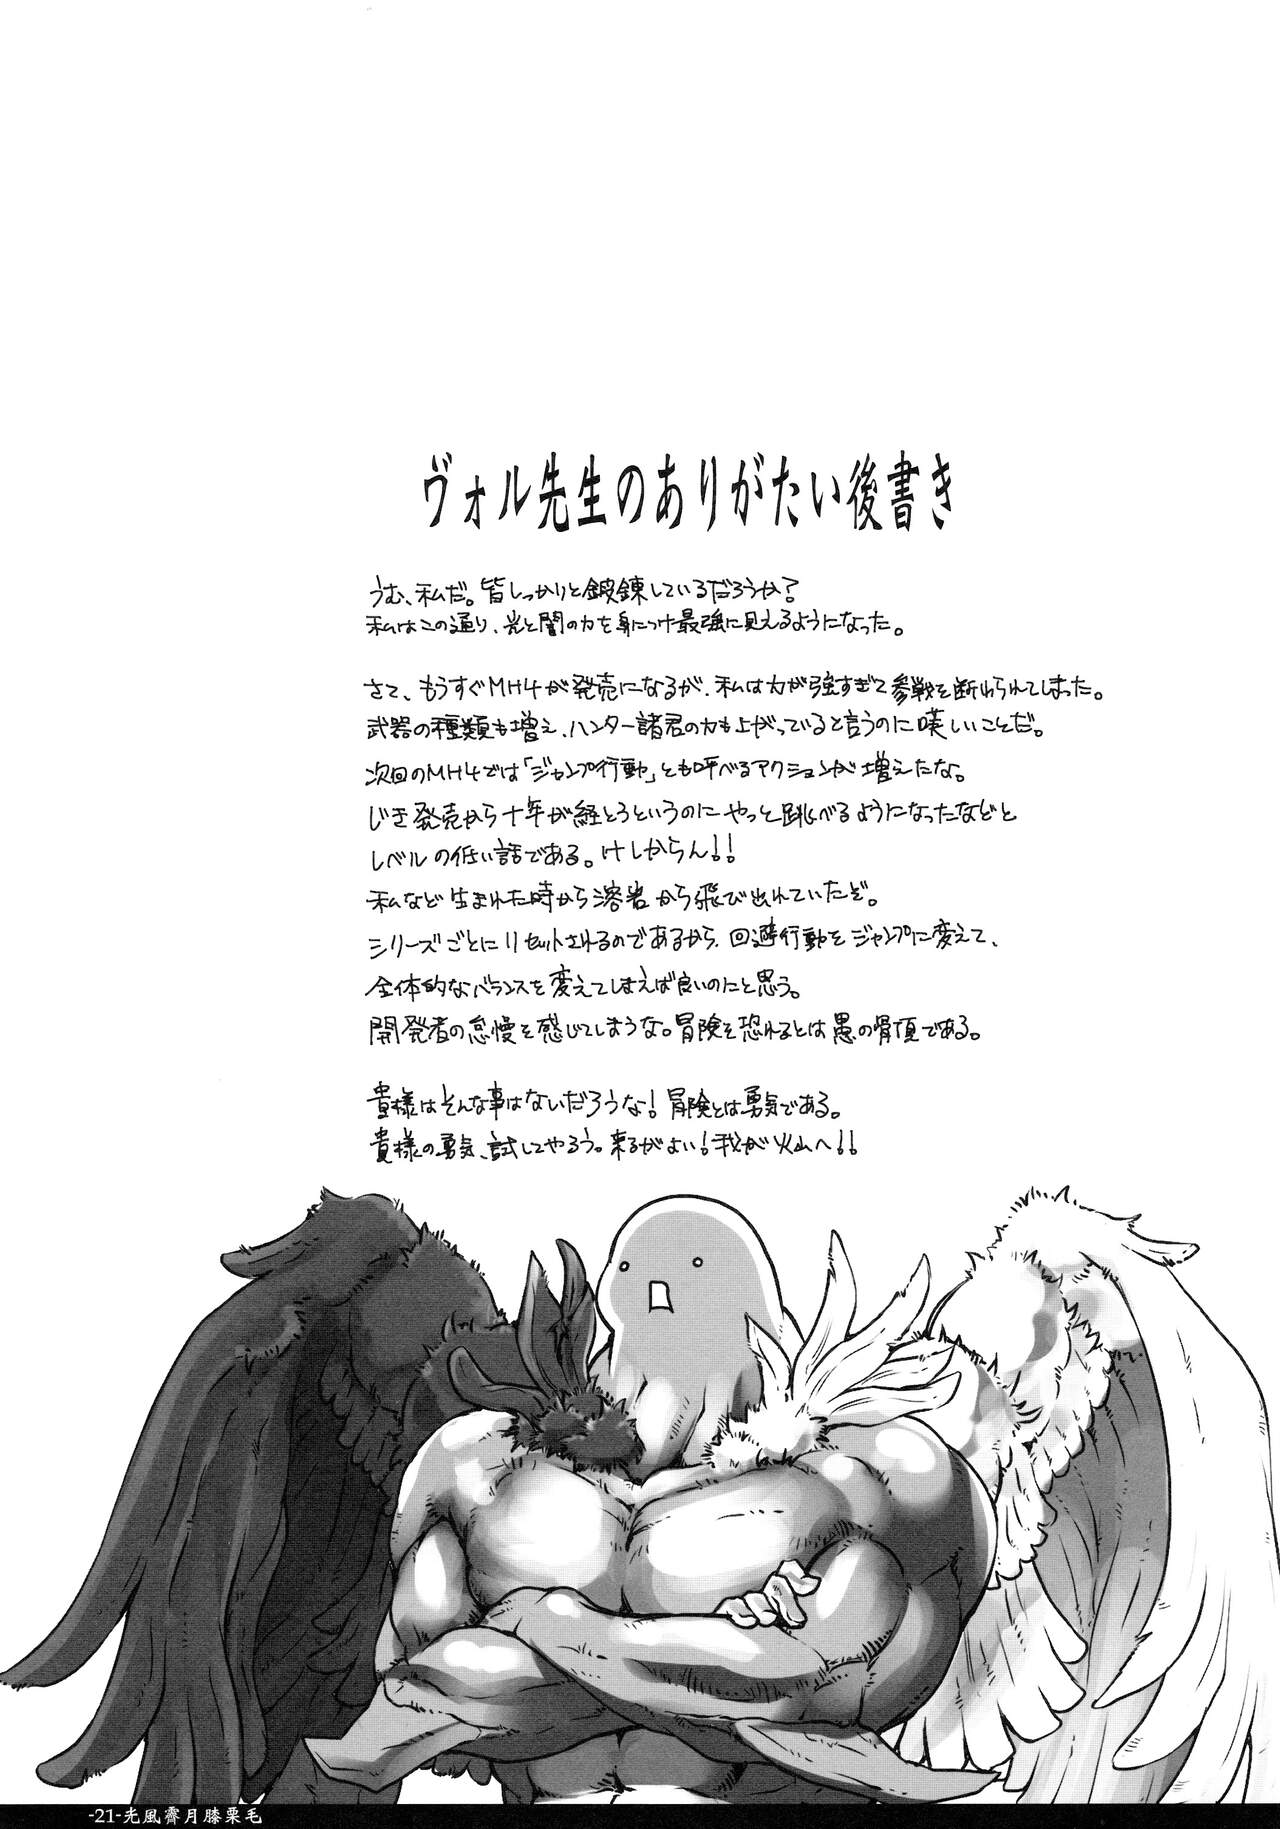 ヴォル先生のありがたい後書き
うむ、私だ。皆しっかりと鍛錬しているだろうか？
私はこの通り、光と闇の力を身につけ最強に見えるようになった。
さて、もうすぐMH4が発売になるが、私は力が強すぎて参戦を断わられてしまった。
武器の種類も増え、ハンター諸君の力も上がっていると言うのに嘆しいことだ。
次回のMH4では「ジャンプ行動」とも呼べるアクションが増えたな。
じき発売から十年が経とうというのにやっと跳べるようになったなどと
レベルの低い話である。けしからん！！
私など生まれた時から溶岩から飛び出れていたぞ。
シリーズごとにリセットされるのであるから、回避行動をジャンプに変えて、
全体的なバランスを変えてしまえば良いのにと思う。
開発者の怠慢を感じてしまうな。冒険を恐れるとは愚の骨頂である。
貴様はそんな事はないだろうな！冒険とは勇気である。
貴様の勇気、試してやろう。来るがよい！我が火山へ！！
-21-光風霽月膝栗毛